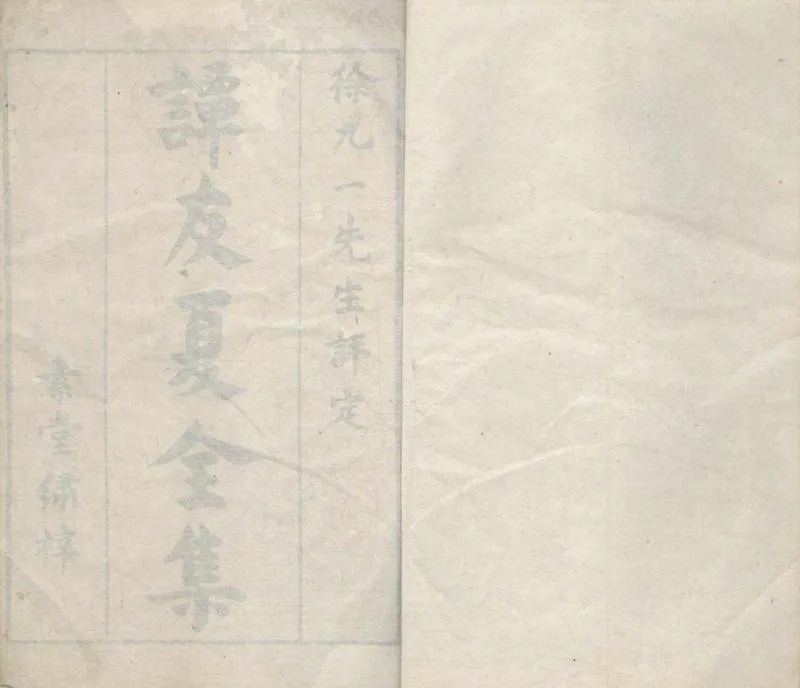 徐九一先生評定
譚友夏全集
素堂繡梓